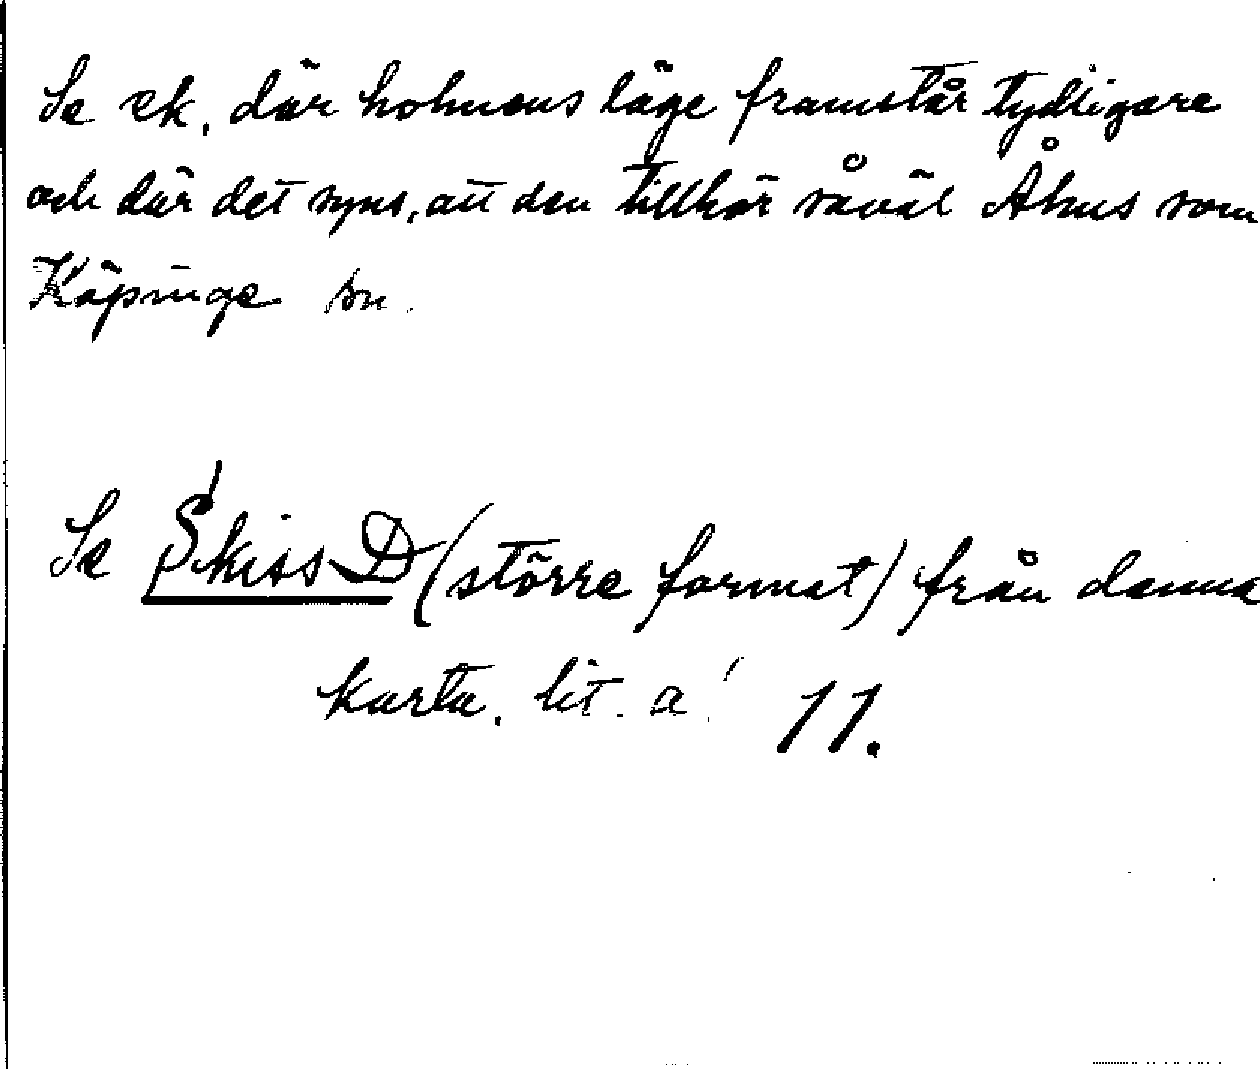 Se ek, där holmens läge framstår tydligare
och där det syns, att den tillhör såväl Åhus som
Köpinge sn.
Se Skiss D (större format) från denna
karta. lit. a! 11.